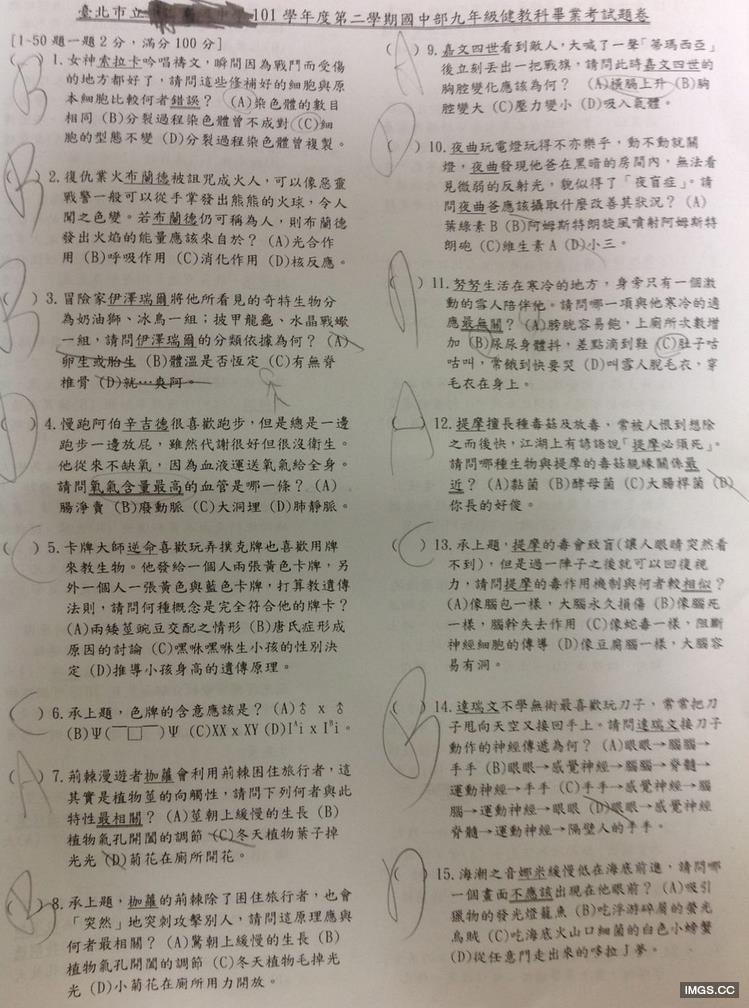 臺北市立 101學年度第二學期國中部九年級健教科畢業考試題卷
[1~50題一題2分,滿分100分]
(B) 1.女神索拉卡吟唱禱文,瞬間因為戰鬥而受傷
的地方都好了,請問這些修補好的細胞與原
本細胞比較何者錯誤? (A)染色體的數目
相同 (B)分裂過程染色體曾不成對 (C)細
胞的型態不變 (D)分裂過程染色體曾複製。
(B) 2.復仇業火布蘭德被詛咒成火人,可以像惡靈
戰警一般可以從手掌發出熊熊的火球,令人
聞之色變。若布蘭德仍可稱為人,則布蘭德
發出火焰的能量應該來自於? (A)光合作
用 (B)呼吸作用 (C)消化作用 (D)核反應。
(B) 3.冒險家伊澤瑞爾將他所看見的奇特生物分
為奶油獅、冰鳥一組;披甲龍龜、水晶戰蠍
一組,請問伊澤瑞爾的分類依據為何? (A)
卵生或胎生 (B)體溫是否恆定 (C)有無脊
椎骨 (D)就…臭阿。
(D) 4.慢跑阿伯辛吉德很喜歡跑步,但是總是一邊
跑步一邊放屁,雖然代謝很好但很沒衛生。
他從來不缺氧,因為血液運送氧氣給全身。
請問氧氣含量最高的血管是哪一條? (A)
腸淨賣 (B)廢動脈 (C)大洞埋 (D)肺靜脈。
(C) 5.卡牌大師逆命喜歡玩弄撲克牌也喜歡用牌
來教生物。他發給一個人兩張黃色卡牌,另
外一個人一張黃色與藍色卡牌,打算教遺傳
法則,請問何種概念是完全符合他的牌卡?
(A)兩矮莖豌豆交配之情形 (B)唐氏症形成
原因的討論 (C)嘿咻嘿咻生小孩的性別決
定 (D)推導小孩身高的遺傳原理。
(C) 6.承上題,色牌的含意應該是? (A)♂ x ♂
(B)Ψ(￣□￣)Ψ (C)XX x XY (D)Iᴬi x Iᴮi。
(A) 7.荊棘漫遊者枷蘿會利用荊棘困住旅行者,這
其實是植物莖的向觸性,請問下列何者與此
特性最相關? (A)莖朝上緩慢的生長 (B)
植物氣孔開闔的調節 (C)冬天植物葉子掉
光光 (D)菊花在廁所開花。
(B) 8.承上題,枷蘿的荊棘除了困住旅行者,也會
「突然」地突刺攻擊別人,請問這原理應與
何者最相關? (A)莖朝上緩慢的生長 (B)
植物氣孔開闔的調節 (C)冬天植物毛掉光
光 (D)小菊花在廁所用力開放。
(A) 9.嘉文四世看到敵人,大喊了一聲「蒂瑪西亞」
後立刻丟出一把戰旗,請問此時嘉文四世的
胸腔變化應該為何? (A)橫膈上升 (B)胸
腔變大 (C)壓力變小 (D)吸入氣體。
(D) 10.夜曲玩電燈玩得不亦樂乎,動不動就關
燈,夜曲發現他爸在黑暗的房間內,無法看
見微弱的反射光,貌似得了「夜盲症」。請
問夜曲爸應該攝取什麼改善其狀況? (A)
葉綠素B (B)阿姆斯特朗旋風噴射阿姆斯特
朗砲 (C)維生素A (D)小三。
(A) 11.努努生活在寒冷的地方,身旁只有一個激
動的雪人陪伴他。請問哪一項與他寒冷的適
應最無關? (A)膀胱容易飽,上廁所次數增
加 (B)尿尿身體抖,差點滴到鞋 (C)肚子咕
咕叫,常餓到快要哭 (D)叫雪人脫毛衣,穿
毛衣在身上。
(A) 12.提摩擅長種毒菇及放毒,常被人恨到想除
之而後快,江湖上有諺語說「提摩必須死」。
請問哪種生物與提摩的毒菇親緣關係最
近? (A)黏菌 (B)酵母菌 (C)大腸桿菌 (D)
你長的好傻。
(C) 13.承上題,提摩的毒會致盲(讓人眼睛突然看
不到),但是過一陣子之後就可以回復視
力,請問提摩的毒作用機制與何者較相似?
(A)像腦包一樣,大腦永久損傷 (B)像腦死
一樣,腦幹失去作用 (C)像蛇毒一樣,阻斷
神經細胞的傳導 (D)像豆腐腦一樣,大腦容
易有洞。
(B) 14.達瑞文不學無術最喜歡玩刀子,常常把刀
子甩向天空又接回手上。請問達瑞文接刀子
動作的神經傳遞為何? (A)眼眼→腦腦→
手手 (B)眼眼→感覺神經→腦腦→脊髓→
運動神經→手手 (C)手手→感覺神經→腦
腦→運動神經→眼眼 (D)眼眼→感覺神經→
脊髓→運動神經→隔壁人的手手。
(D) 15.海潮之音娜米緩慢低在海底前進,請問哪
一個畫面不應該出現在他眼前? (A)吸引
獵物的發光燈籠魚 (B)吃浮游碎屑的螢光
烏賊 (C)吃海底火山口細菌的白色小螃蟹
(D)從任意門走出來的哆拉J夢。
IMGS.CC